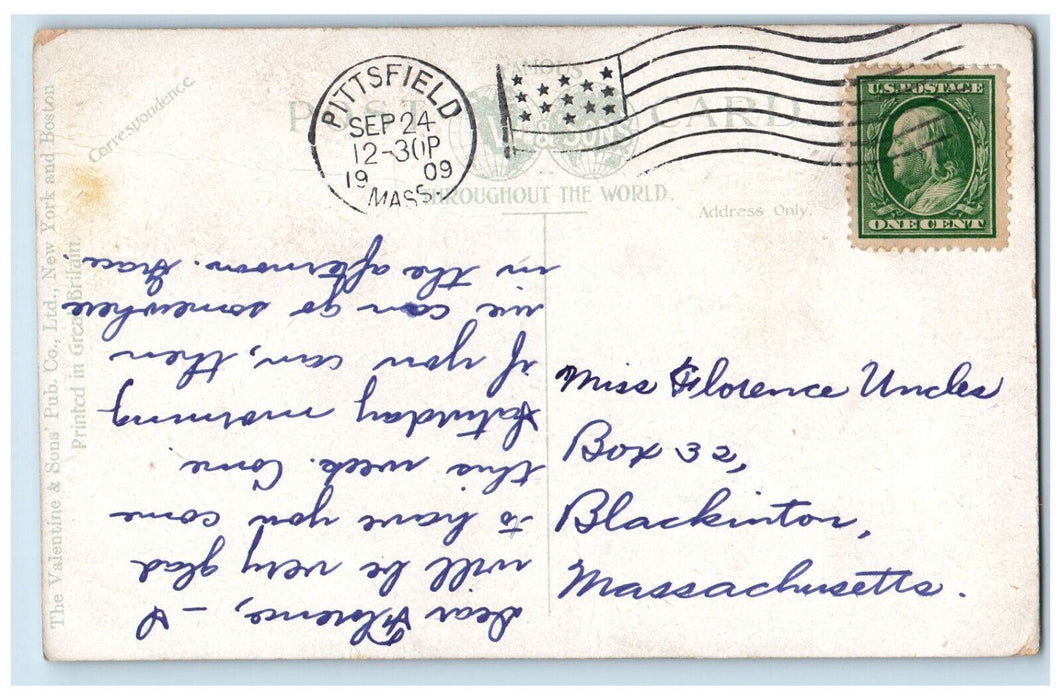 FAMOUS
POST CARD
Valentine & Sons
THROUGHOUT THE WORLD.
Correspondence.
Address Only.
PITTSFIELD
SEP 24
12-30P
19 09
MASS.
U.S. POSTAGE
ONE CENT
Miss Florence Uncles
Box 32,
Blackinton,
Massachusetts.
Dear Florence, – I
will be very glad
to have you come
this week. Come
Saturday morning
if you can, then
we can go somewhere
in the afternoon. Grace.
The Valentine & Sons' Pub. Co., Ltd., New York and Boston
Printed in Great Britain.